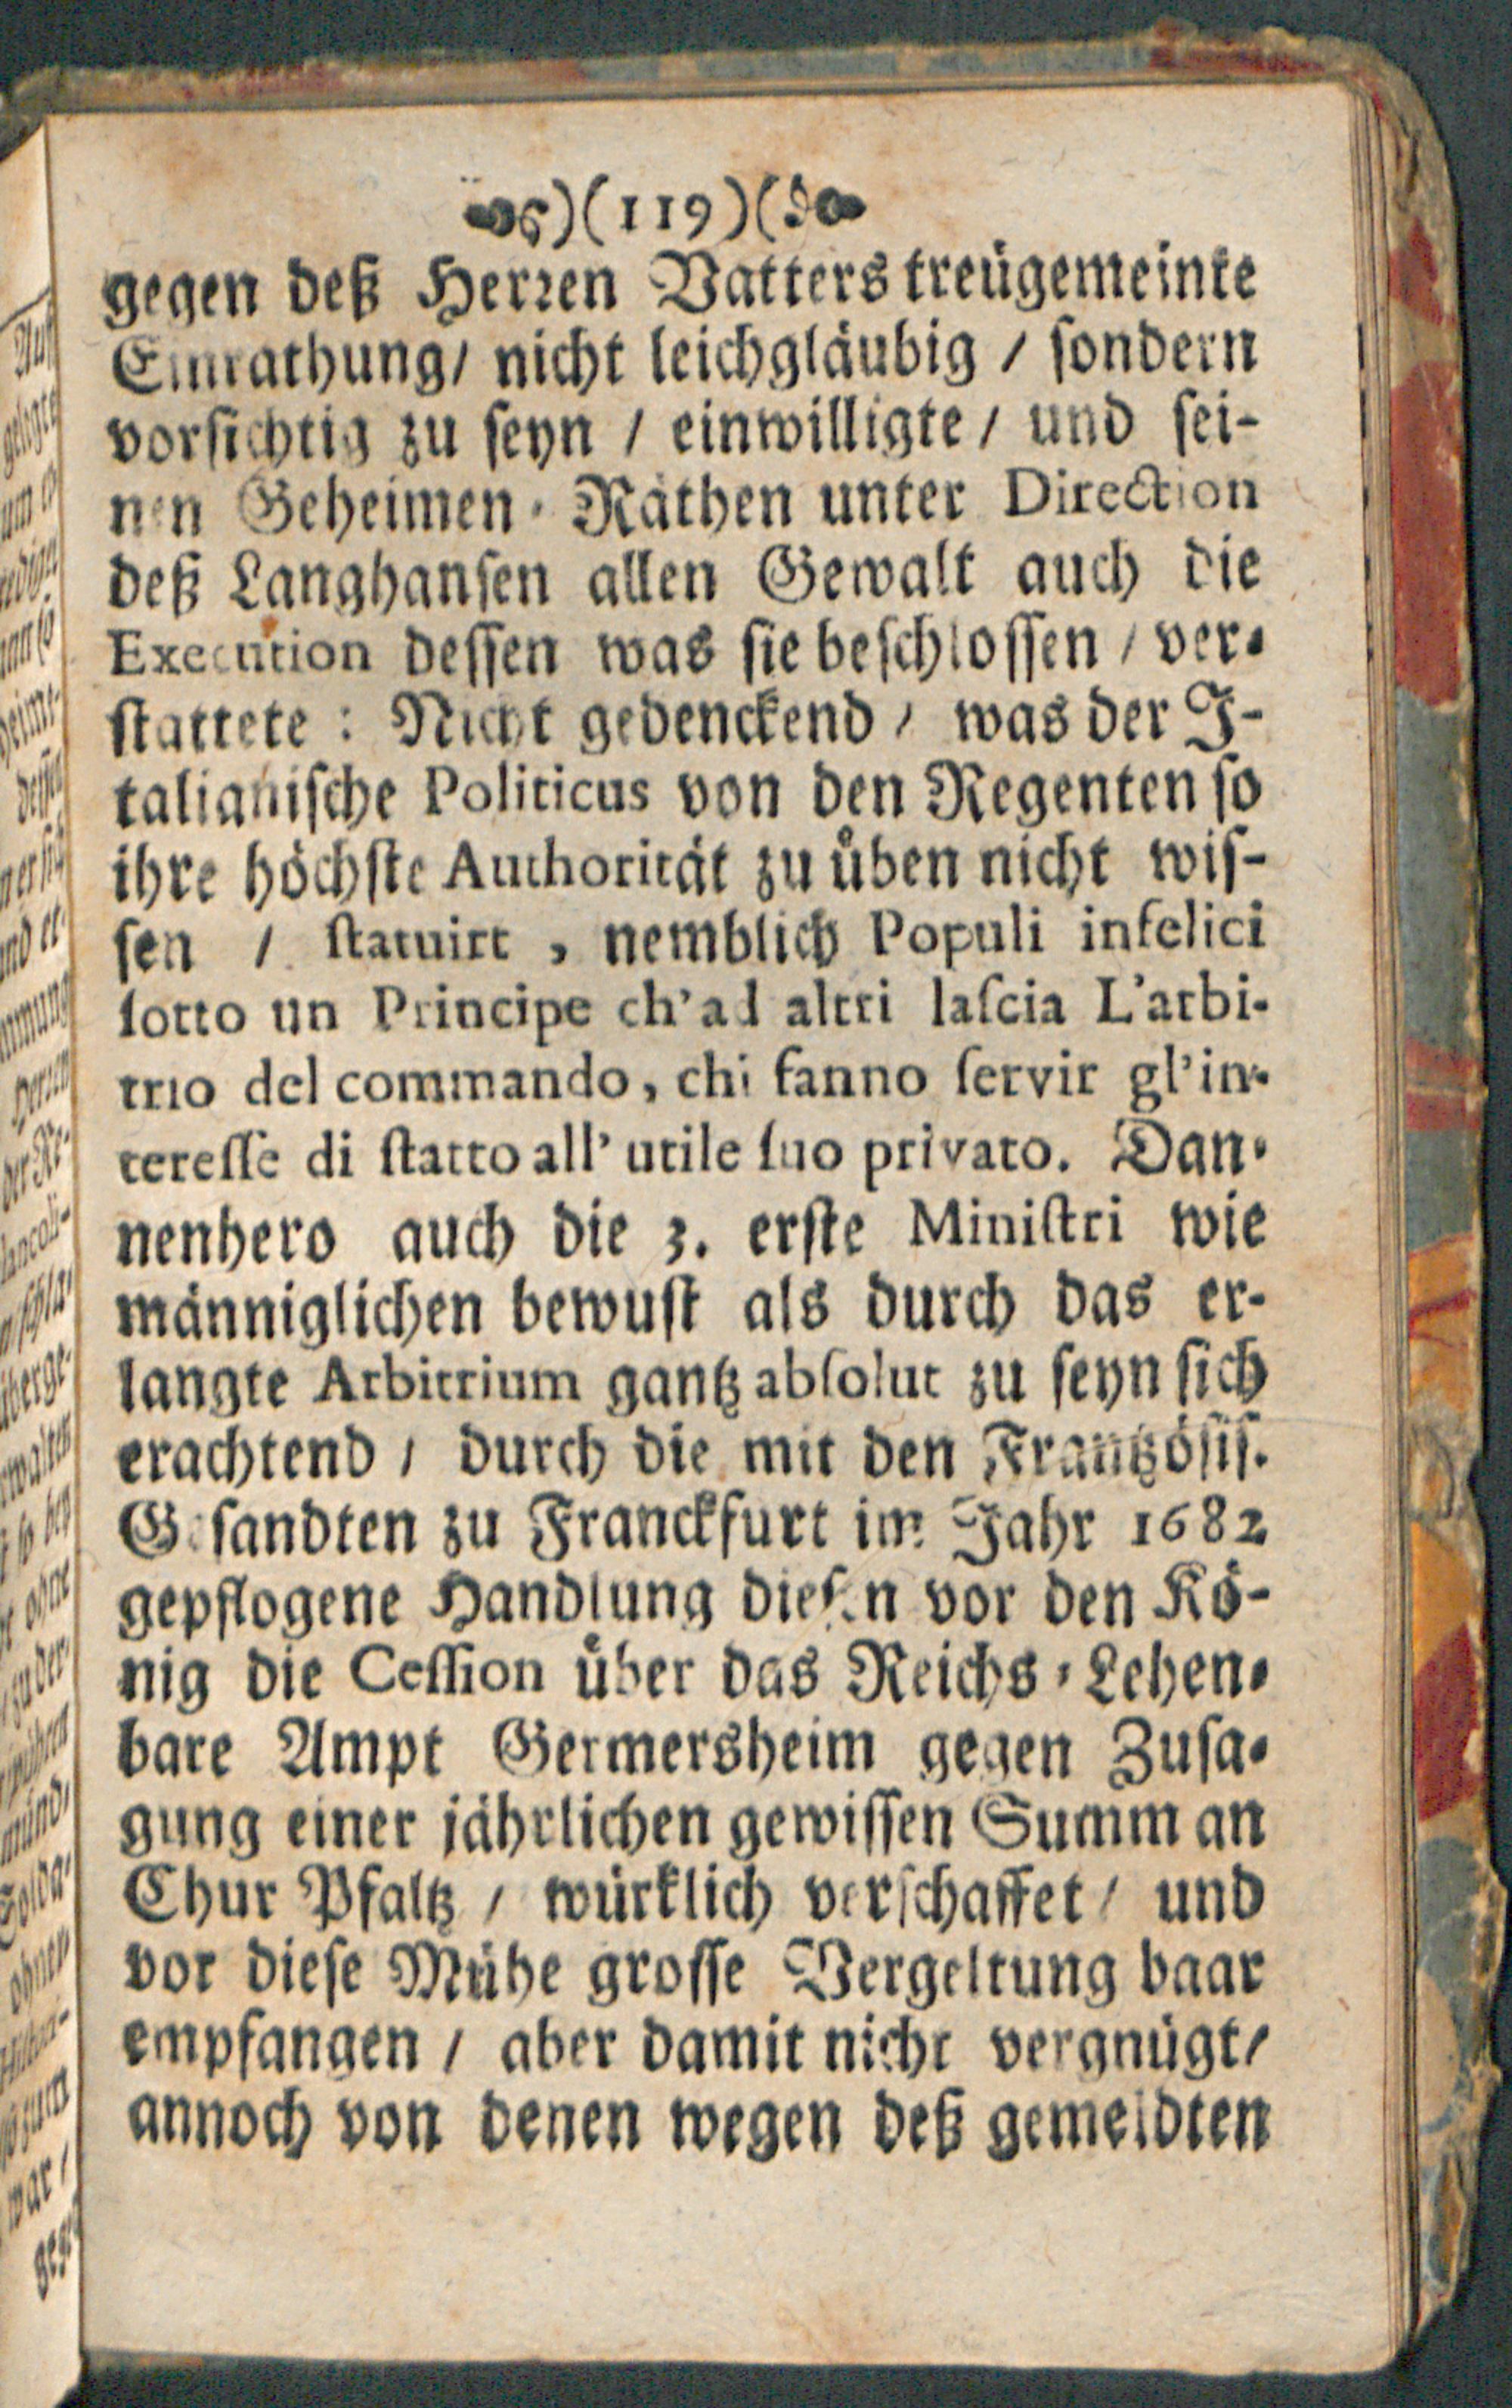 )(119)(
gegen deß Herren Vatters treügemeinte
Einrathung/ nicht leichgläubig / sondern
vorsichtig zu seyn / einwilligte / und sei-
nen Geheimen-Räthen unter Direction
deß Langhansen allen Gewalt auch die
Execution dessen was sie beschlossen / ver-
stattete: Nicht gedenckend / was der J-
taliänische Politicus von den Regenten so
ihre höchste Authorität zu üben nicht wis-
sen / statuirt, nemblich Populi infelici
sotto un Principe ch'ad altri lascia L'arbi-
trio del commando, chi fanno servir gl'in-
teresse di statto all' utile suo privato. Dan-
nenhero auch die 3. erste Ministri wie
männiglichen bewust als durch das er-
langte Arbitrium gantz absolut zu seyn sich
erachtend / durch die mit den Frantzösis.
Gesandten zu Franckfurt im Jahr 1682
gepflogene Handlung diesen vor den Kö-
nig die Cession über das Reichs-Lehen-
bare Ampt Germersheim gegen Zusa-
gung einer jährlichen gewissen Summ an
Chur Pfaltz / würklich verschaffet / und
vor diese Mühe grosse Vergeltung baar
empfangen / aber damit nicht vergnügt/
annoch von denen wegen deß gemeldten